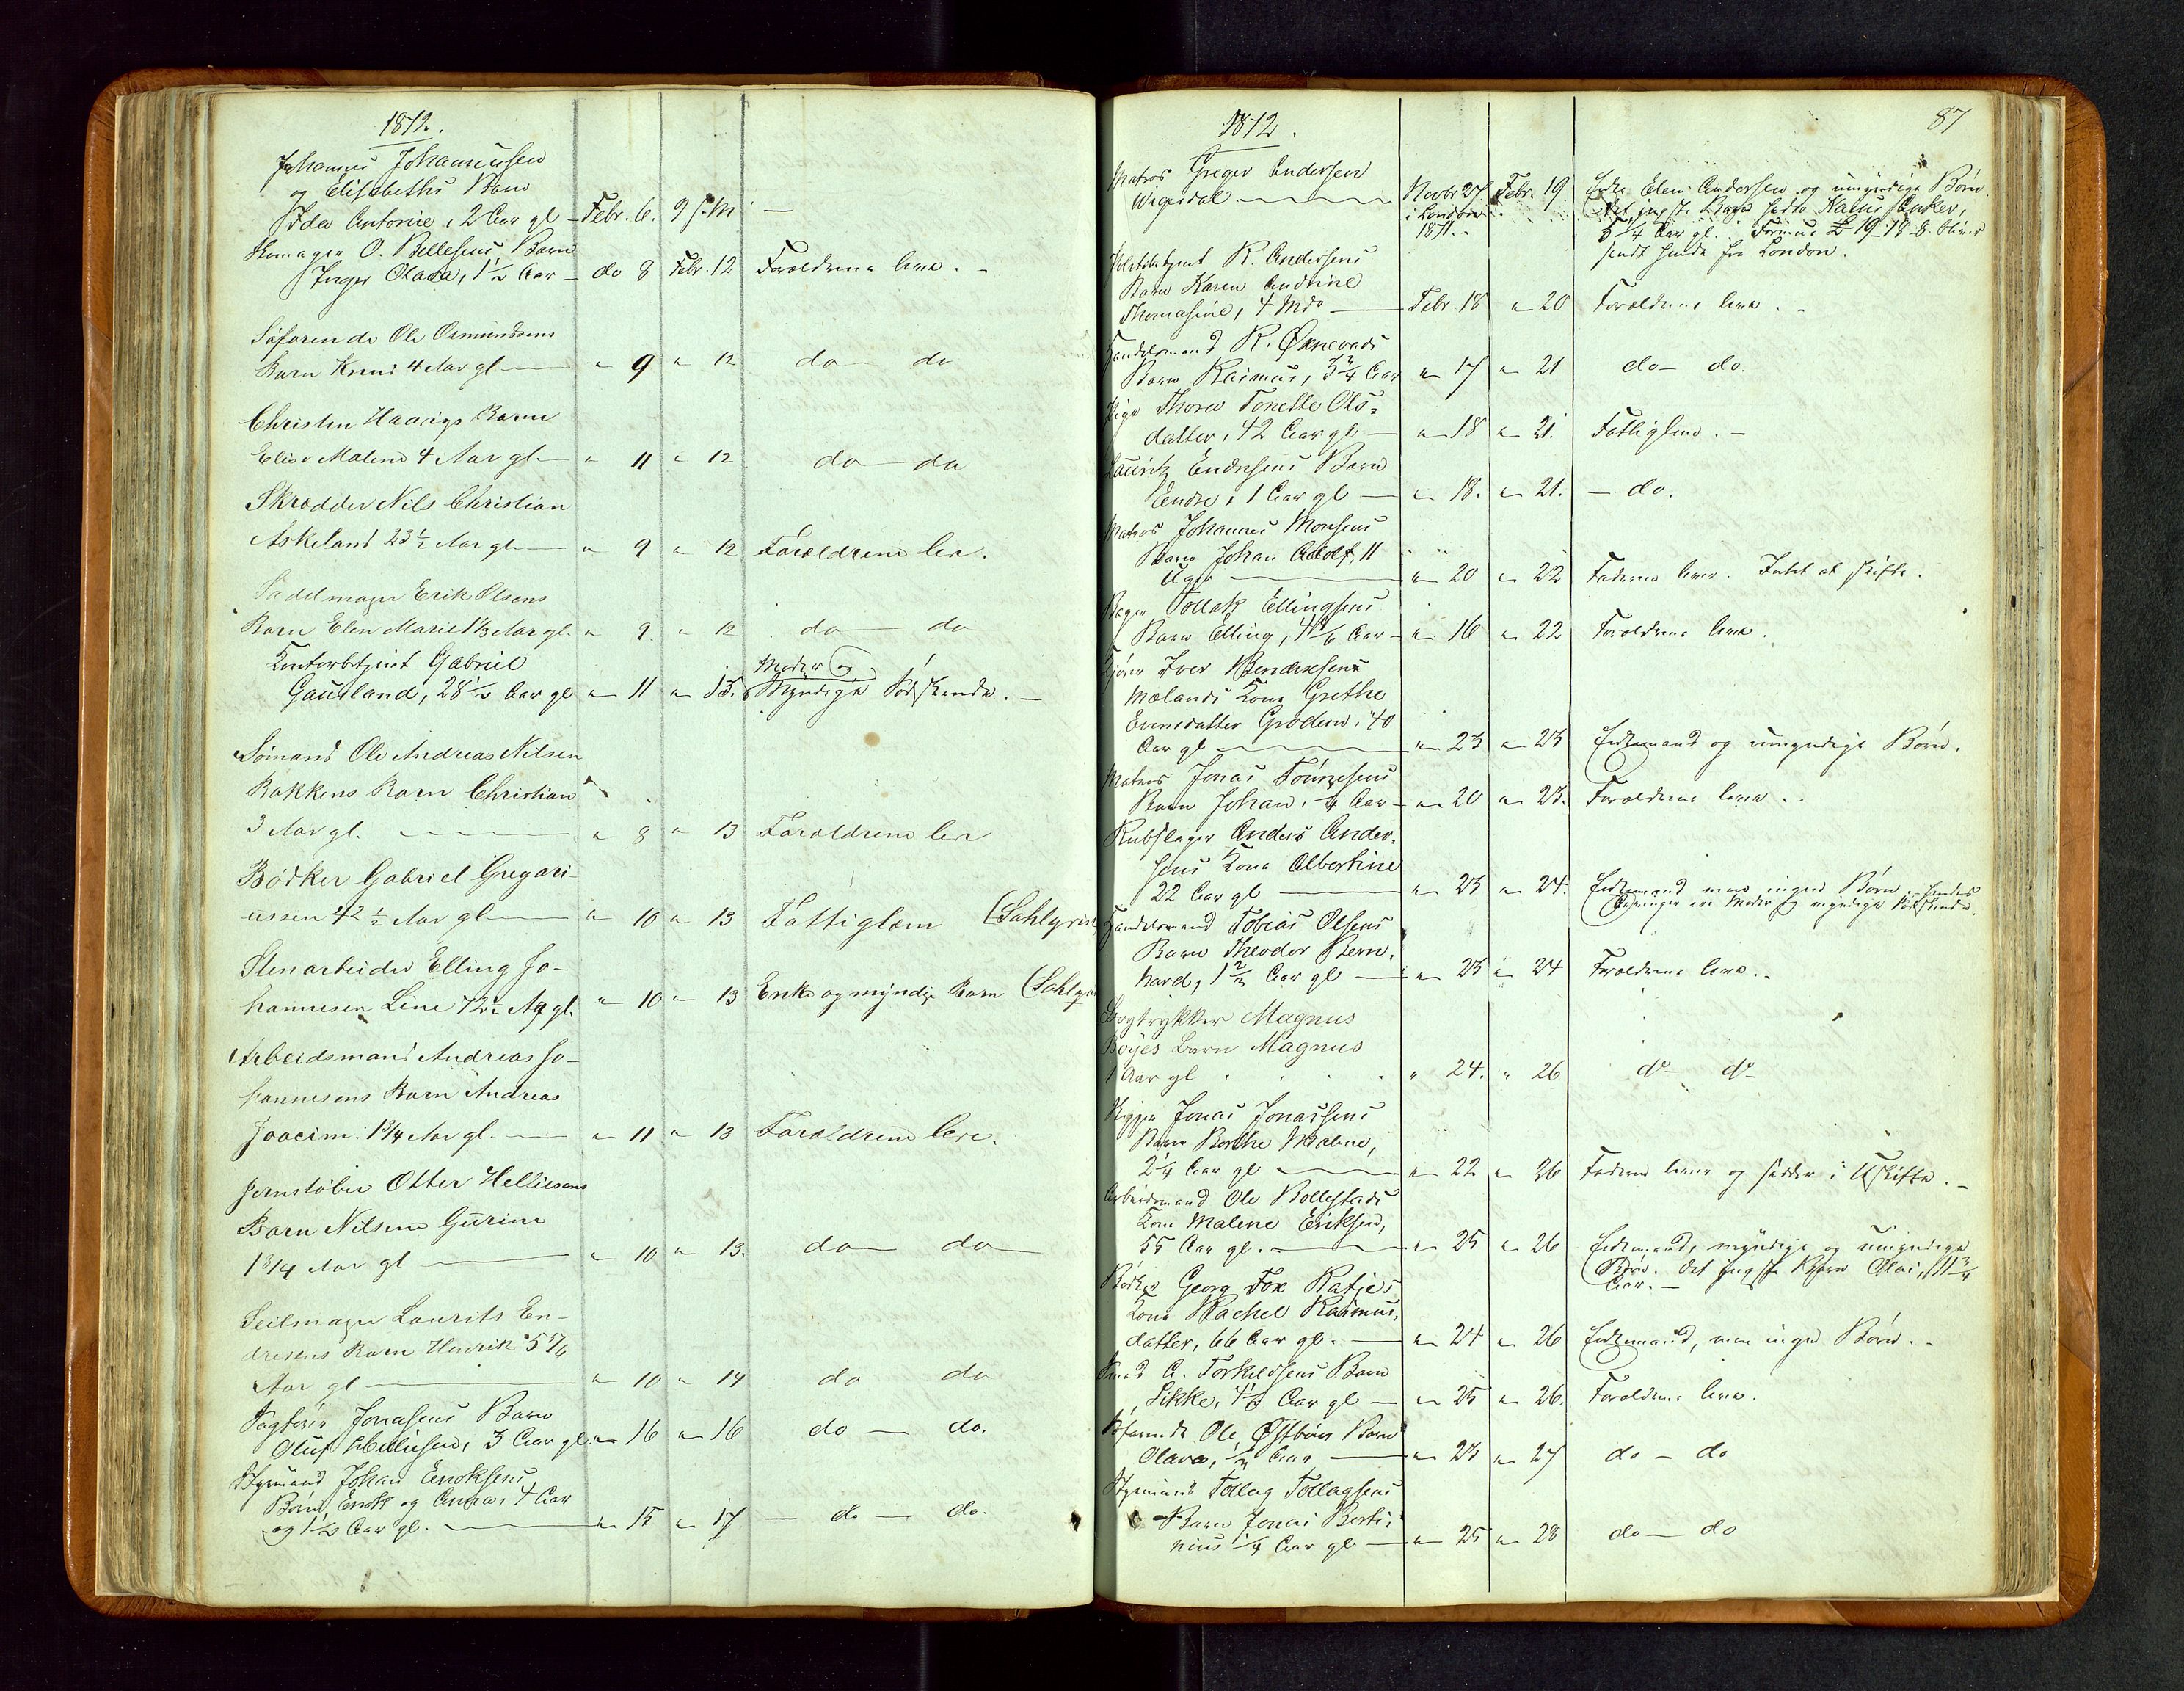 1872.
Johannes Johannessen
og Elisabeths Barn
Ida Antonie, 2 Aar gl – Febr. 6. 9 f. M –
Skomager O. Bellesens Barn
Inger Olava, 1 1/2 Aar – do 8 Febr. 12 Forældrene leve. –
Søfarende Ole Osmundsens
Barn Knud 4 Aar gl — " 9 " 12 do — do
Christen Haarigs Barn
Elise Malene 4 Aar gl – " 11 " 12 do — do
Skrædder Nils Christian
Askeland 23 1/2 Aar gl — " 9 " 12 Forældrene lev.
Sadelmager Erik Olsens
Barn Elen Marie 1 1/3 Aar gl. " 9. " 12 do — do
Kontorbetjent Gabriel
Gausland, 28 1/2 Aar gl " 11 " 15. Moder og
Myndige Sødskende. –
Sømand Ole Andreas Nilsen
Bakkens Barn Christian
3 Aar gl. — " 8 " 13 Forældrene leve
Bødker Gabriel Gregari-
ussen 42 1/2 Aar gl — " 10 " 13 Fattiglem
Stenarbeider Elling Jo-
hannesen Line Aar gl. " 10 " 13 Enke og myndige Barn
Arbeidsmand Andreas Jo-
hannesens Barn Andreas
Joacim: 1 3/4 Aar gl. — " 11 " 13 Forældrene leve.
Jernstøber Otter Helliesens
Barn Nilsine Gurine
1 3/4 Aar gl — " 10 " 13. do — do
Seilmager Laurits En-
dresens Barn Henrik 5 5/6
Aar gl — " 10 " 14 do do
Jonasens Barn
Oluf 3 Aar gl. " 16 " 16 do — do.
Styrmand Johan Enoksens
Børn, Enok og Anna, 4 Aar
og 1 1/2 Aar gl. — " 15 " 17 — do — do.
87
1872.
Matros Greger Andersen
Wigesdal — Novbr 27 Febr. 19. Enke Elen Andersen og umyndige Børn.
i London
1871.
det yngste Barn
5 1/4 Aar gl. Formue £ 19-18-8.
sendt hende fra London.
Politibetjent R. Andersens
Barn Karen Andrine
Thomasine, 4 Mdr — Febr. 18 " 20 Forældrene leve. –
Handelsmand R. Øknevads
Barn Rasmus, 3 3/4 Aar " 17 " 21 do — do.
Pige Thoren Tonette Ols-
datter, 42 Aar gl — " 18 " 21. Fattiglem. –
Lauritz Endresens Barn
Endre, 1 Aar gl — " 18. " 21. — do.
Matros Johannes Monsens
Barn Johan Adolf, 11
Uger — " 20 " 22 Faderen lever. Intet at skifte.
Bager Tollak Ellingsens
Barn Elling, 4 1/6 Aar – " 16 " 22 Forældrene leve.
Kjører Iver Bendixsens
Mælands Kone Grethe
Evensdatter Grødem, 40
Aar gl — " 23 " 23 Enkemand og umyndige Børn.
Matros Jonas Tønnesens
Barn Johan, 1/4 Aar – " 20 " 23. Forældrene leve. –
Rebslager Anders Ander-
sens Kone Albertine
22 Aar gl — " 23 " 24. Enkemand men ingen Børn. – hendes
Arvinger er Moder og myndige Sødskende.
Handelsmand Tobias Olsens
Barn Theodor Bern-
hard, 1 2/3 Aar gl — " 23 " 24 Forældrene leve. –
Bogtrykker Magnus
Bøyes Barn Magnus
1 Aar gl . . . " 24. " 26 do do
Rigger Jonas Jonassens
Barn Berthe Malene,
2 1/4 Aar gl — " 22 " 26 Faderen lever og sidder i Uskifte. –
Arbeidsmand Ole Bollestads
Kone Malene Eriksen,
55 Aar gl. — " 25 " 26 Enkemand, myndige og umyndige
Børn. det yngste Barn Olai, 11 3/4
Aar. –
Bødker Georg Fox Katjes
Kone Rachel Rasmus-
datter, 66 Aar gl. — " 24 " 26 Enkemand, men ingen Børn. –
Smed A. Torkeldsens Barn
Sikke, 4 1/2 Aar gl — " 25 " 26. Forældrene leve.
Søfarende Ole Østbøes Barn
Olava, 1/2 Aar — " 23 " 27 do – do
Styrmand Tollag Tollagsens
Barn Jonas Berti-
nius 1/4 Aar gl — " 25 " 28 do — do